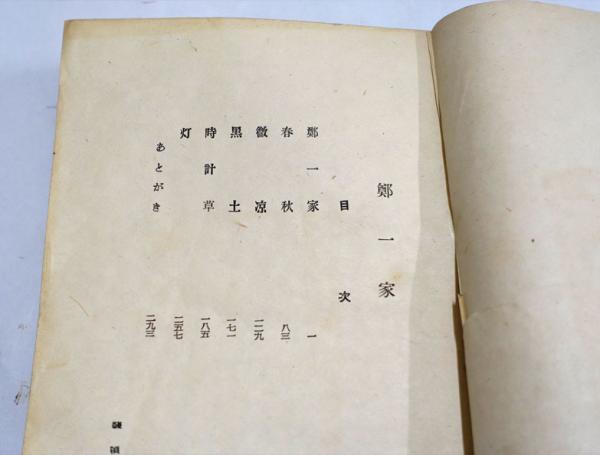 鄭一家
目次
鄭一家 一
春秋 八三
微凉 一二九
黒土 一七一
時計草 一八五
灯 二五七
あとがき 二九三